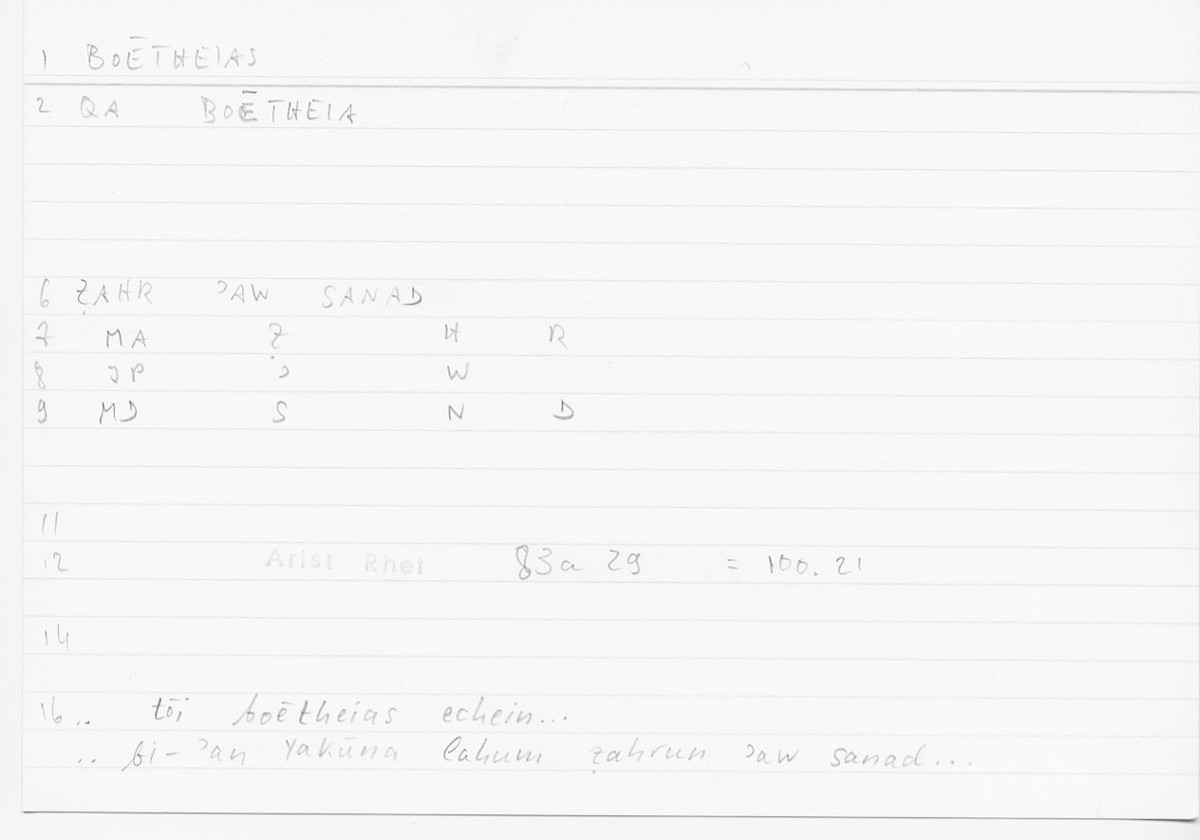 1 BOĒTHEIAS
2 QA BOĒTHEIA
6 ẒAHR ʾAW SANAD
7 MA Ẓ H R
8 JP ʾ W
9 MD S N D
11
12 Arist Rhet 83a 29 = 100. 21
14
16 .. tōi boētheias echein...
.. bi-ʾan yakūna lahum ẓahrun ʾaw sanad...